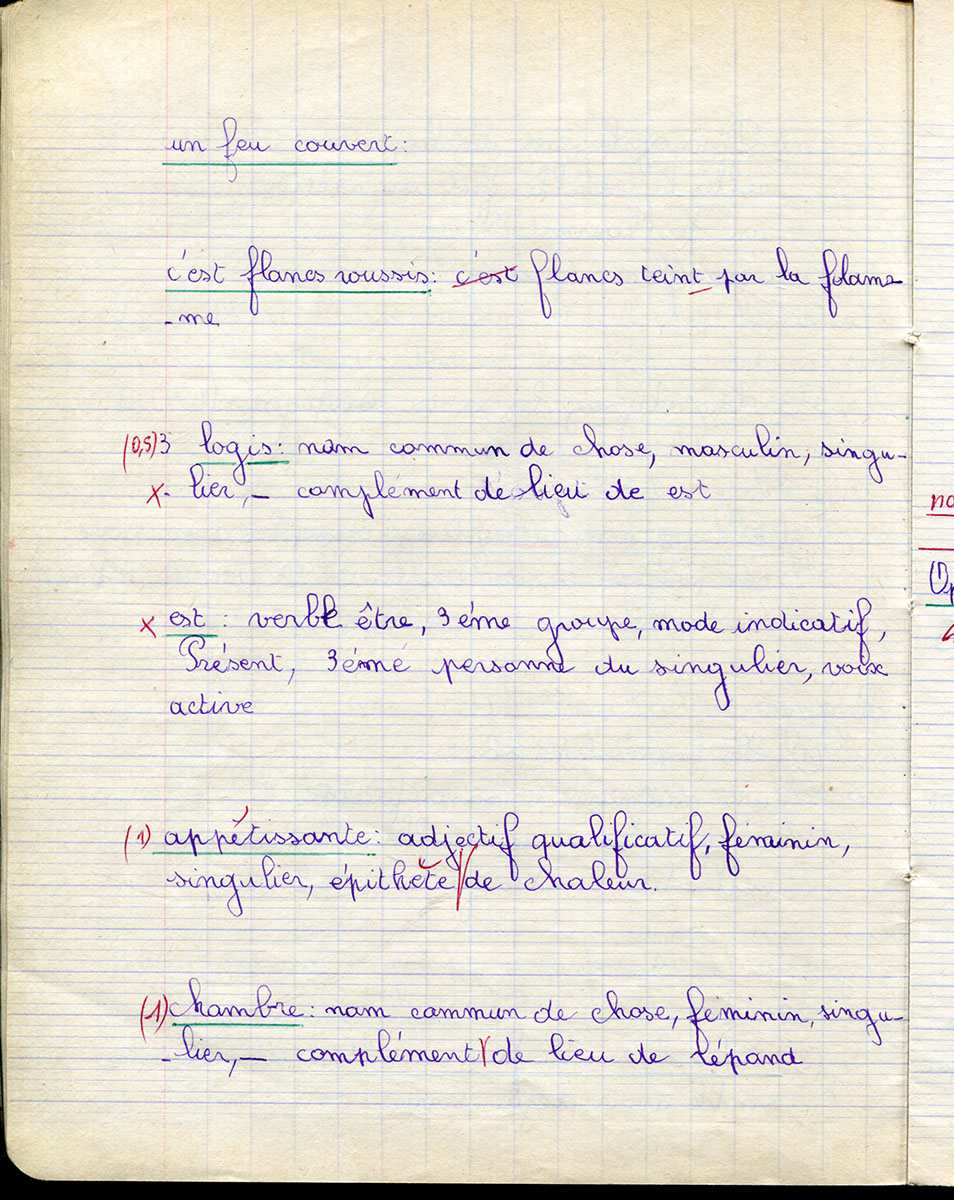 un feu couvert:
c'est flancs roussis: c'est flancs teint par la flam-
-me
(0,5) 3 logis: nom commun de chose, masculin, singu-
x - lier, - complément de lieu de est
x est : verbe être, 3éme groupe, mode indicatif,
Présent, 3éme personne du singulier, voix
active
(1) appétissante: adjectif qualificatif, féminin,
singulier, épithète / de chaleur.
(1) chambre: nom commun de chose, féminin, singu-
-lier, - complément / de lieu de répand